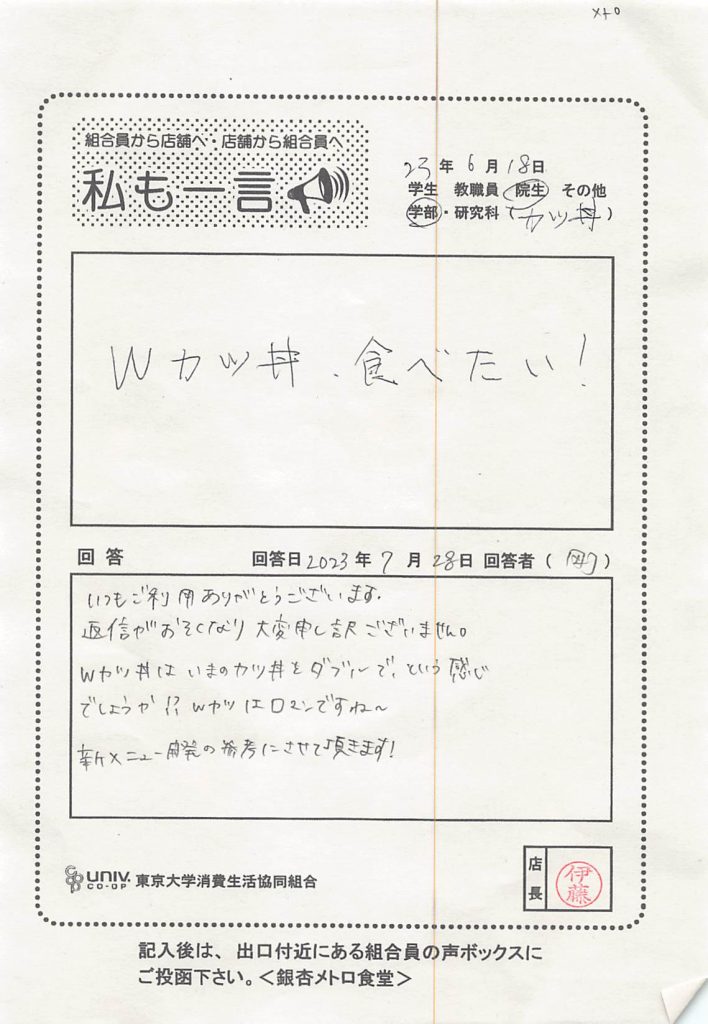 メトロ
組合員から店舗へ・店舗から組合員へ
私も一言
23年6月18日
学生 教職員 院生 その他
学部・研究科(カツ丼)
Wカツ丼、食べたい!
回答 回答日2023年7月28日 回答者( )
いつもご利用ありがとうございます。
返信がおそくなり大変申し訳ございません。
Wカツ丼はいまのカツ丼をダブルで、という感じ
でしょうか!? WカツはロマンですねA~
新メニュー開発の参考にさせて頂きます!
店長
伊藤
UNIV. CO-OP 東京大学消費生活協同組合
記入後は、出口付近にある組合員の声ボックスに
ご投函下さい。<銀杏メトロ食堂>